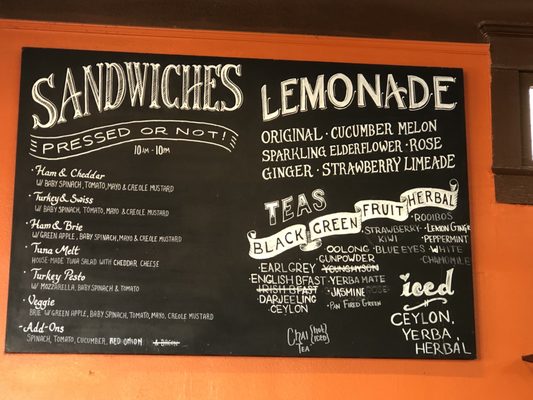 SANDWICHES
PRESSED OR NOT!
10AM - 10PM
· Ham & Cheddar
W/ BABY SPINACH, TOMATO, MAYO & CREOLE MUSTARD
· Turkey & Swiss
W/ BABY SPINACH, TOMATO, MAYO & CREOLE MUSTARD
· Ham & Brie
W/ GREEN APPLE, BABY SPINACH, MAYO & CREOLE MUSTARD
· Tuna Melt
HOUSE-MADE TUNA SALAD WITH CHEDDAR CHEESE
· Turkey Pesto
W/ MOZZARELLA, BABY SPINACH & TOMATO
· Veggie
BRIE W/ GREEN APPLE, BABY SPINACH, TOMATO, MAYO, CREOLE MUSTARD
· Add-Ons
SPINACH, TOMATO, CUCUMBER, RED ONION & BACON
LEMONADE
ORIGINAL · CUCUMBER MELON
SPARKLING ELDERFLOWER · ROSE
GINGER · STRAWBERRY LIMEADE
TEAS
BLACK GREEN FRUIT HERBAL
· EARL GREY
· ENGLISH BFAST
· IRISH BFAST
· DARJEELING
CEYLON
· OOLONG
· GUNPOWDER
· YOUNGHYSON
· YERBA MATE
· JASMINE ROSE
· PAN FIRED GREEN
· STRAWBERRY
KIWI
· BLUE EYES
· ROOIBOS
· LEMON GINGER
· PEPPERMINT
· WHITE
· CHAMOMILE
Chai {HOT
TEA {ICED
iced
CEYLON,
YERBA,
HERBAL